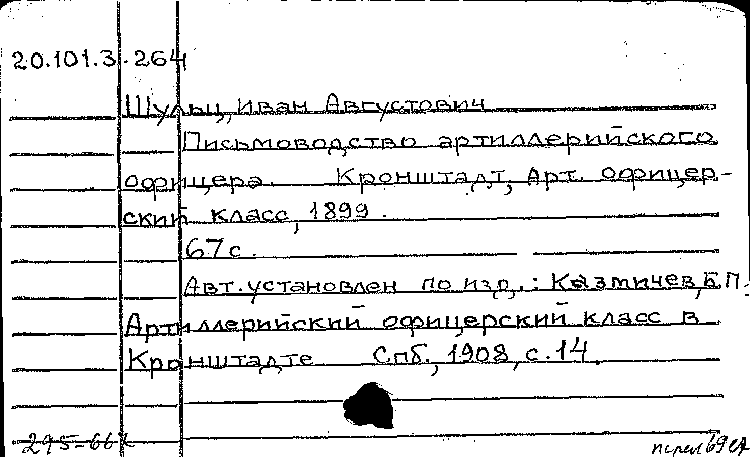 20.101.3.264
Шульц, Иван Августович
Письмоводство артиллерийского
офицера. Кронштадт, Арт. офицер-
ский класс, 1899.
67 с.
Авт. установлен по изд.: Казмичев, Б.П.
Артиллерийский офицерский класс в
Кронштадте Спб., 1908, с. 14.
295-66